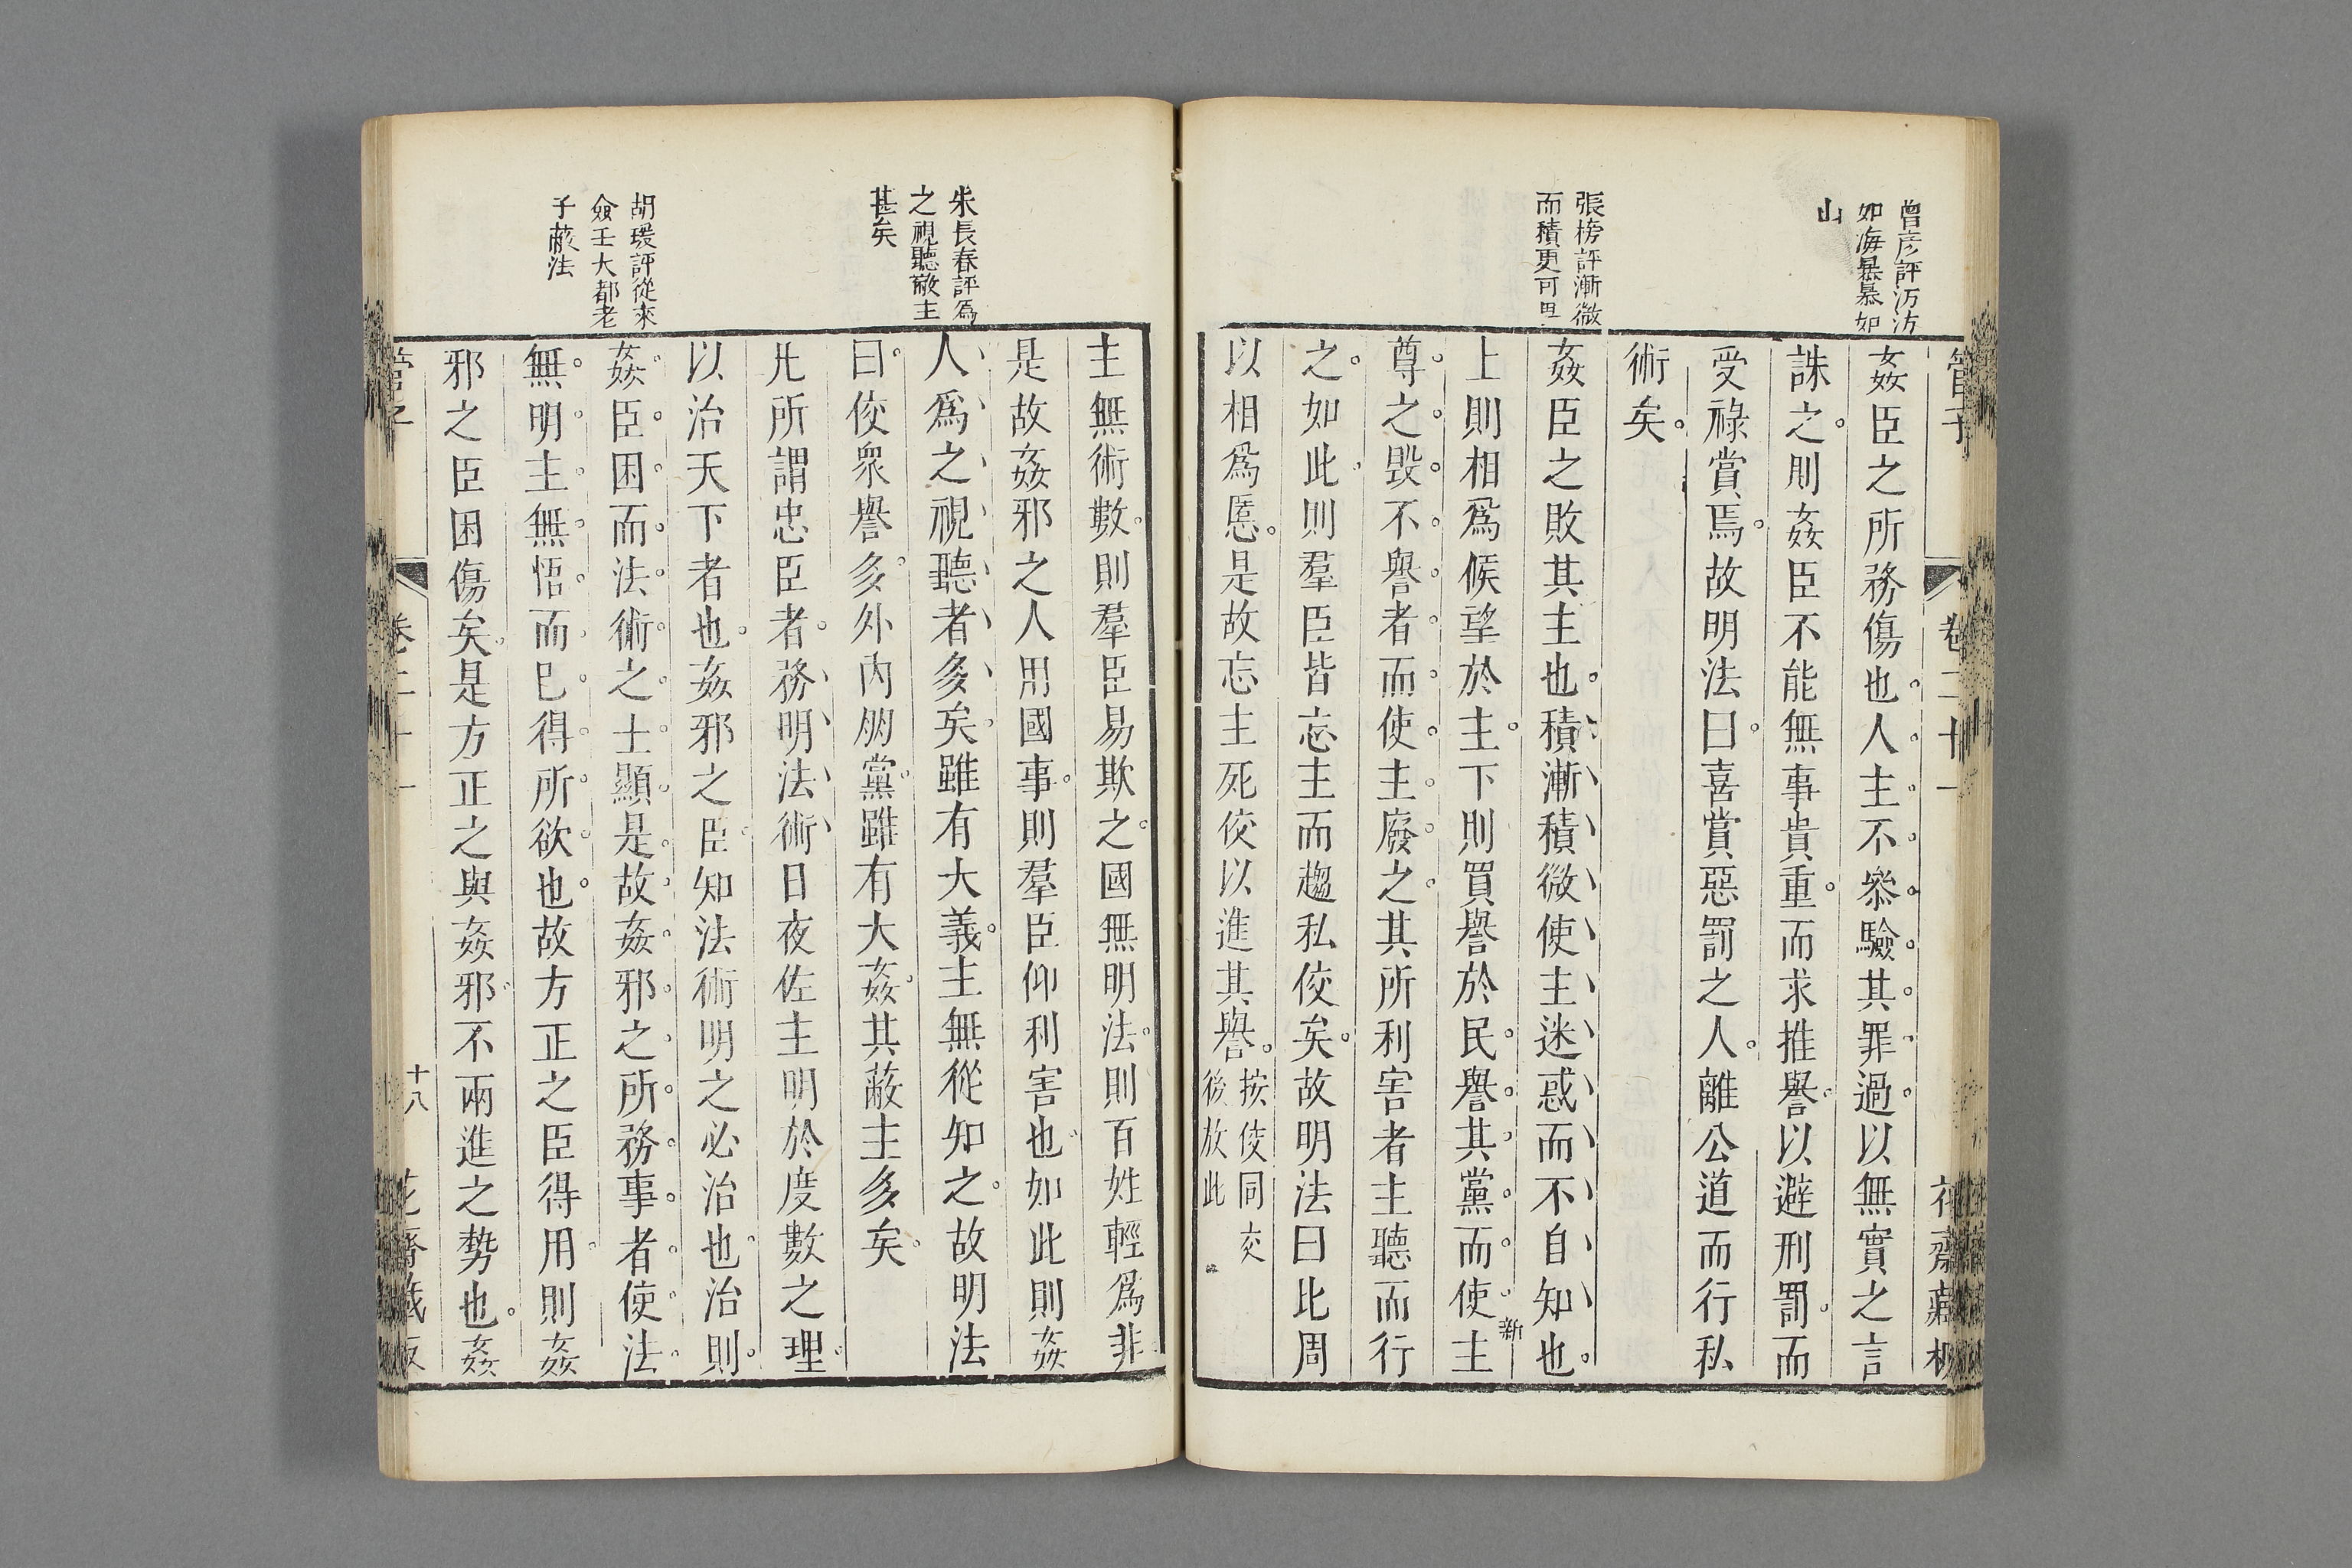 曾彦評汸汸
如海暴暴如
山
張榜評漸微
而積更可
管子
卷二十一
姦臣之所務傷也人主不叅驗其罪過以無實之言
誅之則姦臣不能無事貴重而求推譽以避刑罰而
受祿賞焉故明法曰喜賞惡罰之人離公道而行私
術矣
姦臣之敗其主也積漸積微使主迷惑而不自知也
上則相爲候望於主下則買譽於民譽其黨而使主
尊之毁不譽者而使主廢之其所利害者主聽而行
之如此則羣臣皆忘主而趨私佼矣故明法曰比周
以相爲慝是故忘主死佼以進其譽
按佼同交
後放此
朱長春評爲
之視聽蔽主
甚矣
胡瑗評從來
僉壬大都老
子蔽法
主無術數則羣臣易欺之國無明法則百姓輕爲非
是故姦邪之人用國事則羣臣仰利害也如此則姦
人爲之視聽者多矣雖有大義主無從知之故明法
曰佼衆譽多外内朋黨雖有大姦其蔽主多矣
凡所謂忠臣者務明法術日夜佐主明於度數之理
以治天下者也姦邪之臣知法術明之必治也治則
姦臣困而法術之士顯是故姦邪之所務事者使法
無明主無悟而已得所欲也故方正之臣得用則姦
邪之臣困傷矣是方正之與姦邪不兩進之勢也姦
管子
卷二十一
十八
花齋藏板